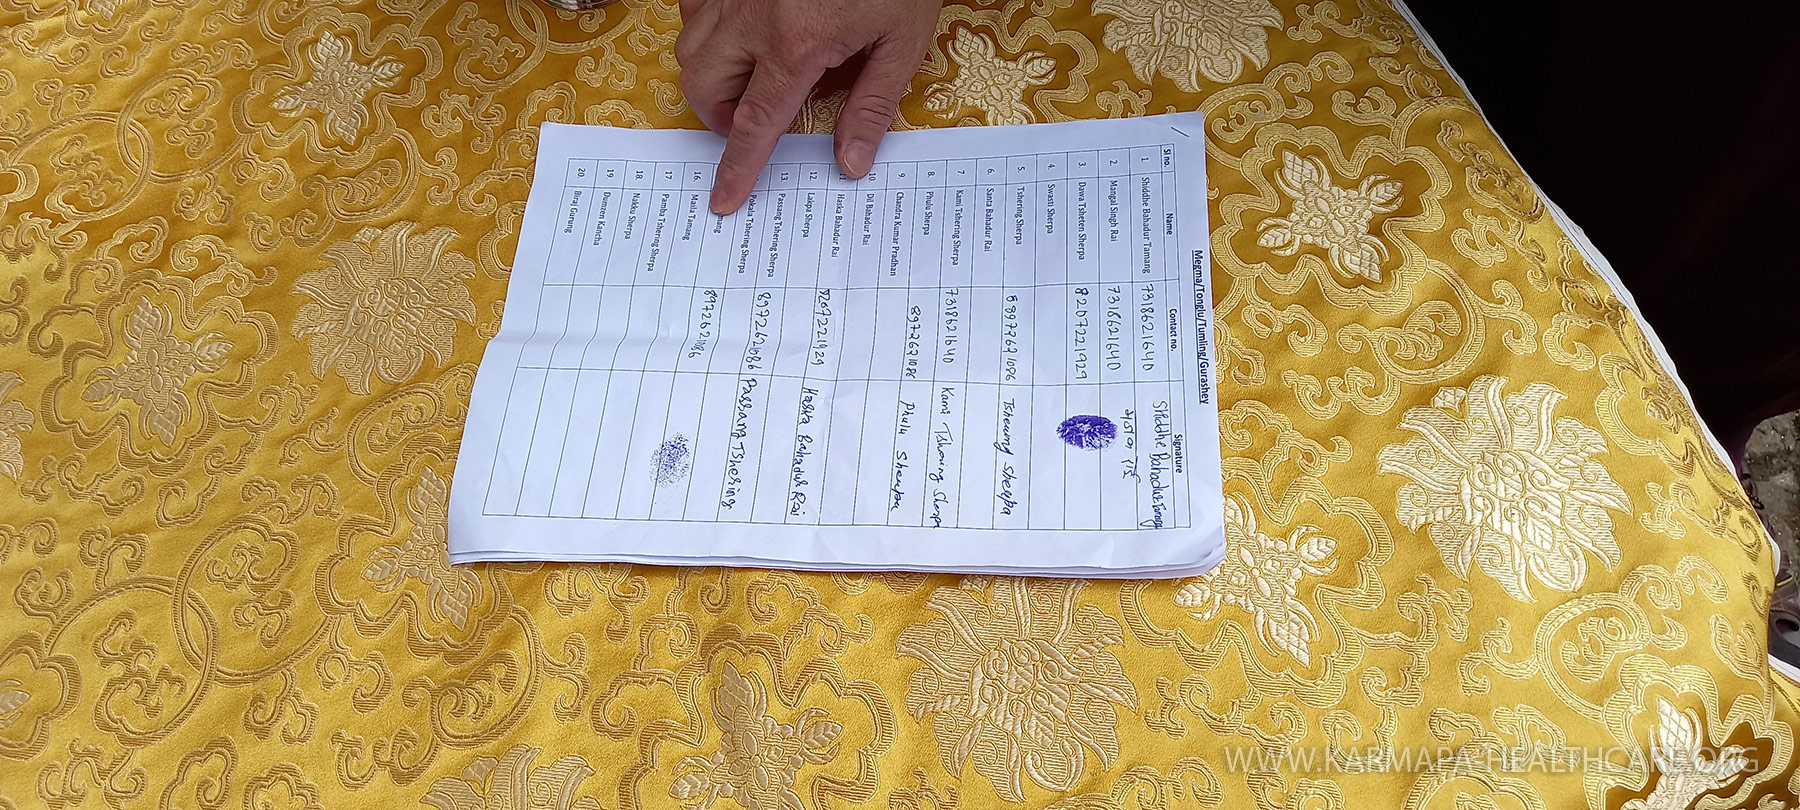 Megma/Tonglu/Tumling/Gurashey
Sl no. Name Contact no. Signature
1. Shiddhe Bahadur Tamang 7318621640 Shiddhe Bahadur
2. Mangal Singh Rai 7318621640
3. Dawa Tsheten Sherpa 8207221929
4. Swasti Sherpa
5. Tshering Sherpa 88972621086 Tshering Sherpa
6. Santa Bahadur Rai
7. Kami Tshering Sherpa 7318621640 Kami Tshering Sherpa
8. Phulu Sherpa 8972621086 Phulu Sherpa
9. Chandra Kumar Pradhan
10. Dil Bahadur Rai
11 Haska Bahadur Rai 8207221929 Haska Bahadur Rai
12. Lakpa Sherpa
13. Passang Tshering Sherpa 8972621086 Passang Tshering
Pokala Tshering Sherpa
mang 8972621086
16. Maila Tamang
17. Pamba Tshering Sherpa
18. Nakku Sherpa
19. Dumzen Kancha
20. Biraj Gurung
WWW.KARMAPA-HEALTHCARE.ORG